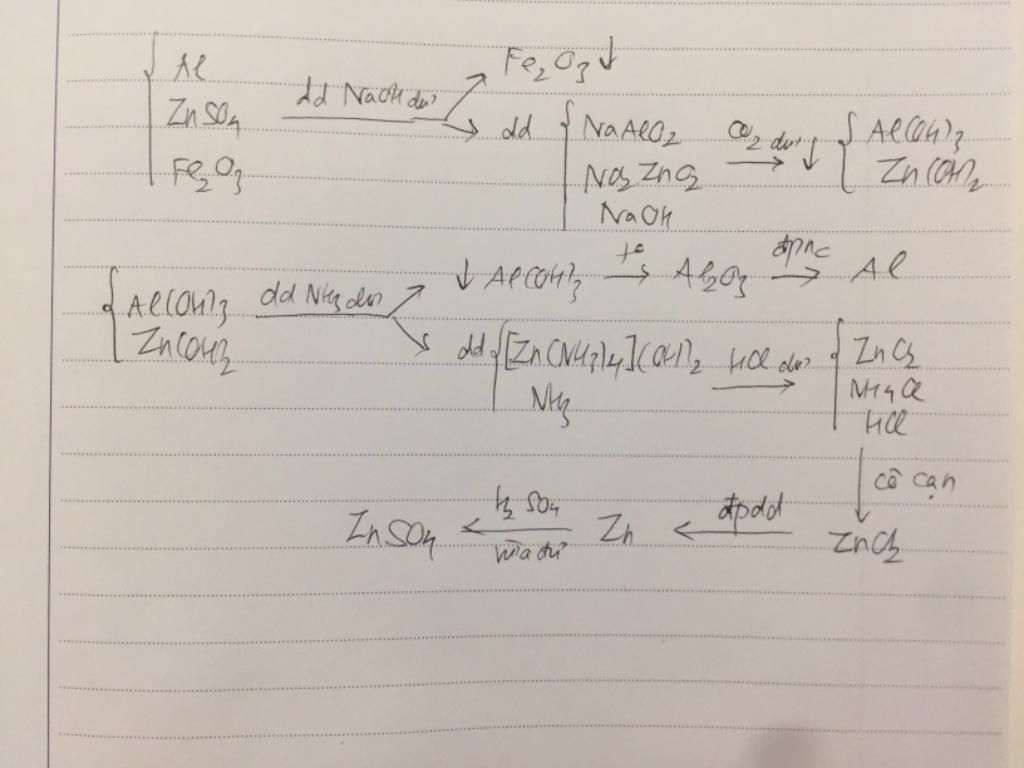 Al
ZnSO4
Fe2O3
dd NaOH dư
Fe2O3 ↓
dd { NaAlO2
Na2ZnO2
NaOH
CO2 dư
↓ { Al(OH)3
Zn(OH)2
{ Al(OH)3
Zn(OH)2
dd NH3 dư
↓ Al(OH)3 t° → Al2O3 đpnc → Al
dd { [Zn(NH3)4](OH)2
NH3
HCl dư
{ ZnCl2
NH4Cl
HCl
cô cạn
ZnSO4 ← H2SO4 vừa đủ Zn ← đpdd ZnCl2